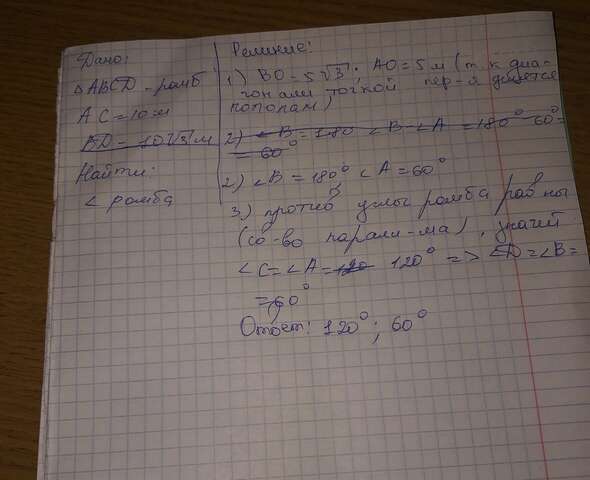 Дано:
△ABCD - ромб
AC = 10 м
BD = 10√3 м
Найти:
∠ ромба
Решение:
1) BO = 5√3 ; AO = 5 м (т. к диа-
гонали точкой пер-я делятся
пополам)
2) ∠B = 180 ∠B ∠A = 180° 60° =
= 60°
2) ∠B = 180°, ∠A = 60°
3) против углы ромба равны
(св-во паралл-ма), значит
∠C = ∠A = 120 120° => ∠D = ∠B =
= 60°
Ответ: 120° ; 60°